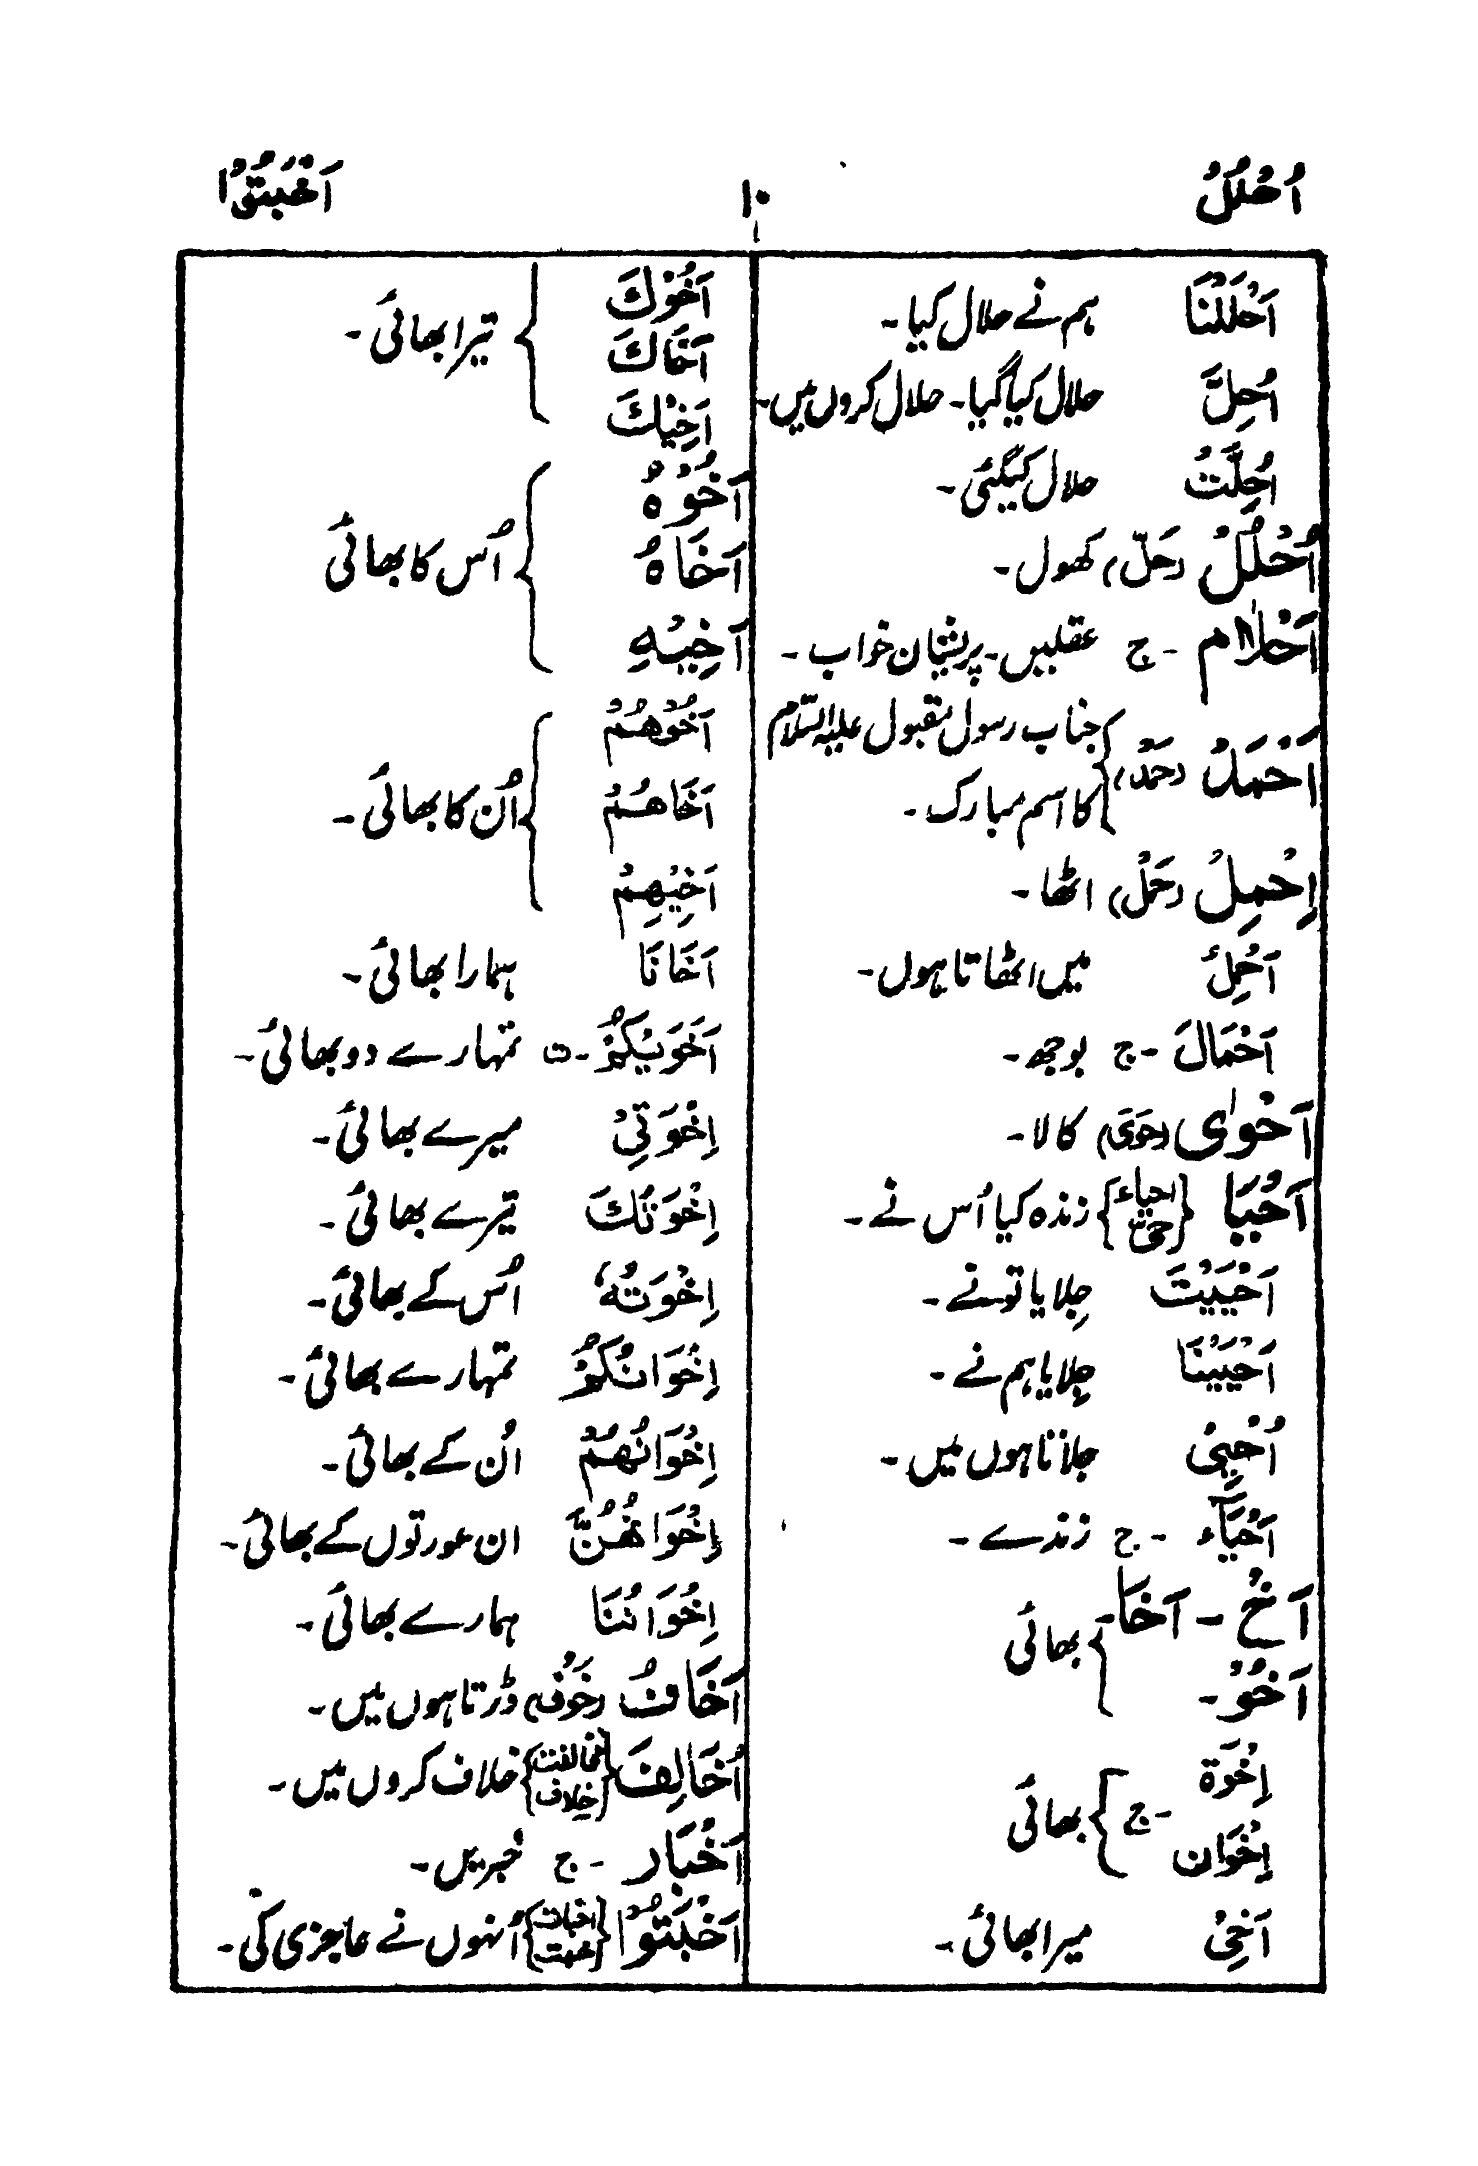 اُحْلُلْ
۱۰
اَخْبَتُوْا
اَحْلَلْنَا ہم نے حلال کیا۔
اُحِلَّ حلال کیا گیا۔ حلال کروں میں۔
اُحِلَّتْ حلال کیگئی۔
اُحْلُلْ (حَلّ) کھول۔
اَحْلَام ۔ ج عقلیں۔ پریشان خواب۔
اَحْمَدُ (حَمْد) جناب رسول مقبول علیہ السّلام
کا اسم مبارک۔
اِحْمِلْ (حَمْل) اٹھا۔
اَحْمِلُ میں اٹھاتا ہوں۔
اَحْمَالَ ۔ ج بوجھ۔
اَحْوٰی (حَوَیَ) کالا۔
اَحْیَا {احیاء حیّ} زندہ کیا اُس نے۔
اَحْیَیْتَ جِلایا تو نے۔
اَحْیَیْنَا جِلایا ہم نے۔
اُحْیِیْ جلاتا ہوں میں۔
اَحْیَآء ۔ ج زندے۔
اَخْ ۔ اَخَا۔
اَخُوْ۔ } بھائی
اِخْوَة
اِخْوَان ۔ ج } بھائی
اَخِیْ میرا بھائی۔
اَخُوْكَ
اَخَاكَ } تیرا بھائی۔
اَخِیْكَ
اَخُوْهُ
اَخَاهُ } اُس کا بھائی
اَخِیْهِ
اَخُوْهُمْ
اَخَاهُمْ } اُن کا بھائی۔
اَخِیْهِمْ
اَخَانَا ہمارا بھائی۔
اَخَوَیْكُمْ ۔ ت تمہارے دو بھائی۔
اِخْوَتِیْ میرے بھائی۔
اِخْوَتُكَ تیرے بھائی۔
اِخْوَتُهٗ اُس کے بھائی۔
اِخْوَانُكُمْ تمہارے بھائی۔
اِخْوَانُهُمْ اُن کے بھائی۔
اِخْوَانُهُنَّ ان عورتوں کے بھائی۔
اِخْوَانُنَا ہمارے بھائی۔
اَخَافُ (خَوْف) ڈرتا ہوں میں۔
اُخَالِفَ {مخالفت خلاف} خلاف کروں میں۔
اَخْبَار ۔ ج خبریں۔
اَخْبَتُوْا {اخبات خبت} اُنہوں نے عاجزی کی۔